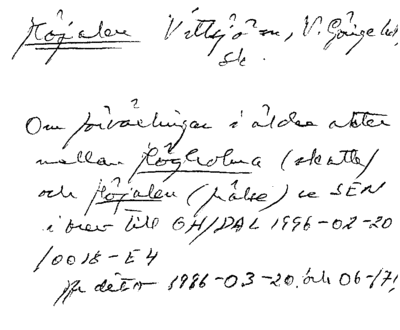 Höjalen Vittsjö sn, V. Göinge hd,
Sk.
Om förväxlingar i äldre akter
mellan Högholma (skatte)
och Höjalen (frälse) se SEN
i brev till GH/DAL 1996-02-20
10018-E4
1986-03-20. och 06-17!